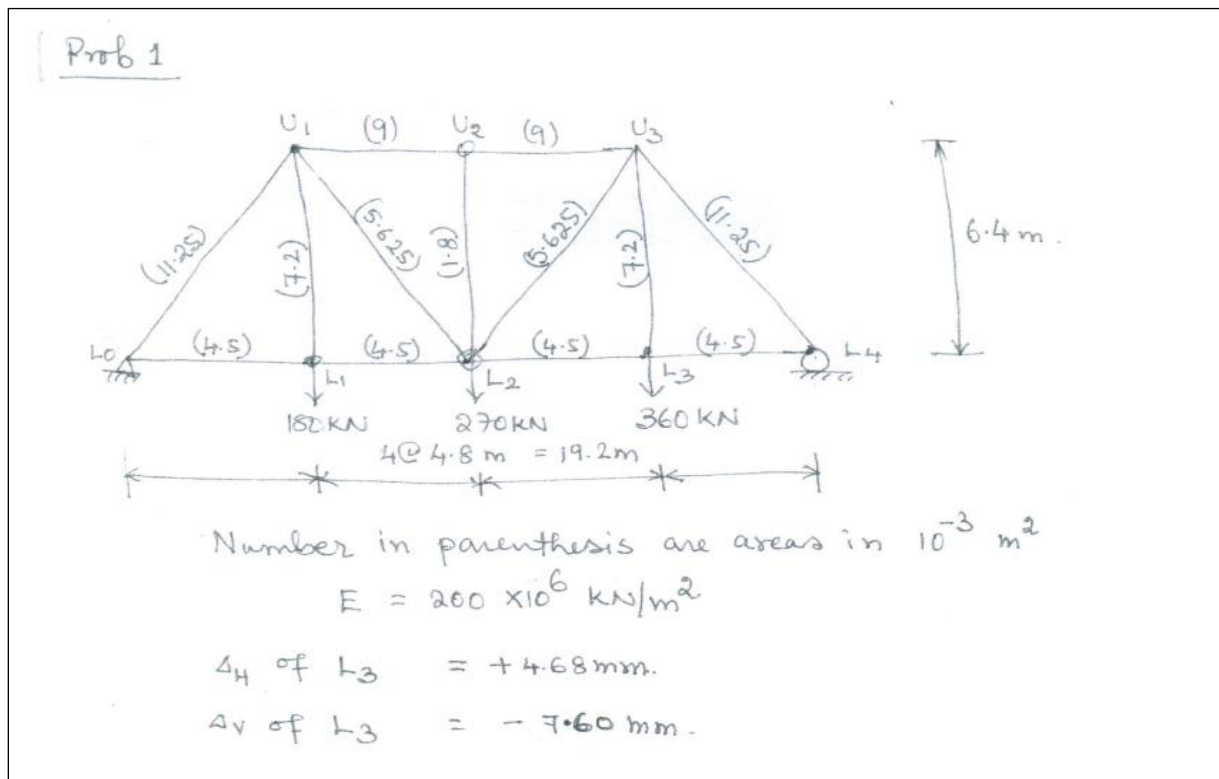 Prob 1
U1 (9) U2 (9) U3
(11.25) (7.2) (5.625) (1.8) (5.625) (7.2) (11.25)
6.4 m.
L0 (4.5) (4.5) (4.5) (4.5) L4
L1 L2 L3
180KN 270KN 360KN
4@ 4.8 m = 19.2m
Number in parenthesis are areas in 10⁻³ m²
E = 200 ×10⁶ KN/m²
ΔH of L3 = +4.68mm.
ΔV of L3 = - 7.60 mm.